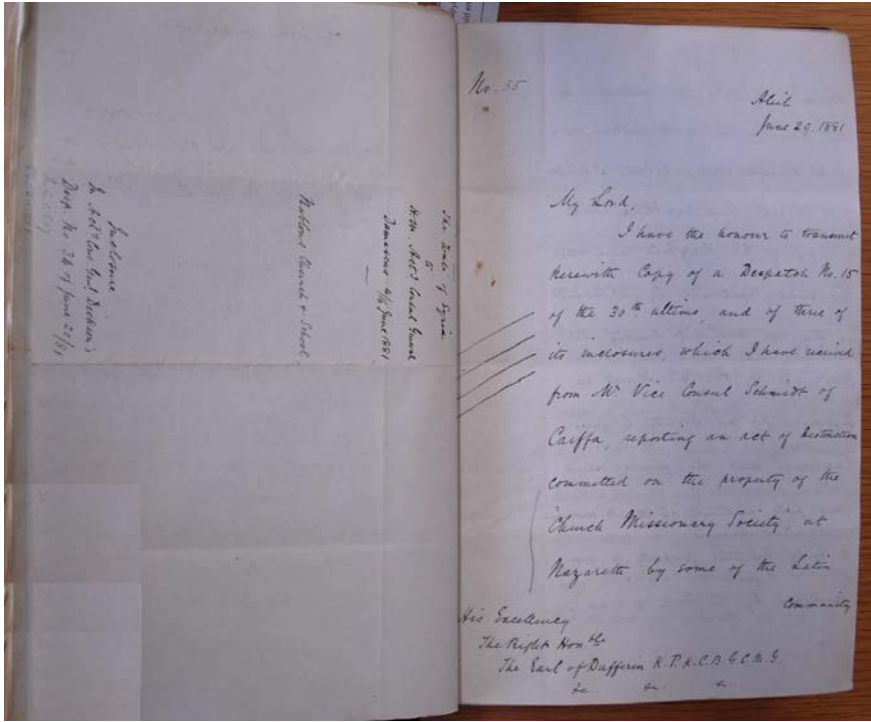 The Wali of Syria
to
H.M. Actg Consul General
Damascus 4/16 June 1881
Nablous Church & School
Inclosure
In Actg Cons. Genl. Dickson's
Desp. No. 34 of June 21/81
No. 35
Aleih
June 29. 1881
My Lord,
I have the honour to transmit
herewith Copy of a Despatch No. 15
of the 30th ultimo, and of three of
its inclosures, which I have received
from Mr Vice Consul Schmidt of
Caiffa, reporting an act of Destruction
committed on the property of the
"Church Missionary Society", at
Nazareth, by some of the Latin
Community
His Excellency
The Right Honble
The Earl of Dufferin K.P. K.C.B. G.C.M.G.
&c. &c. &c.